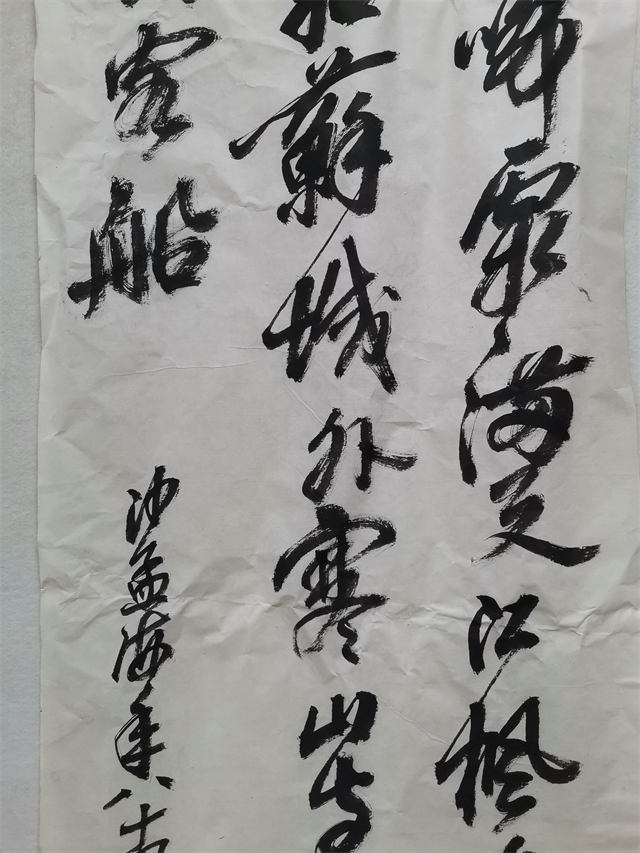 啼霜满天江枫
苏城外寒山寺
客船
沙孟海年八十